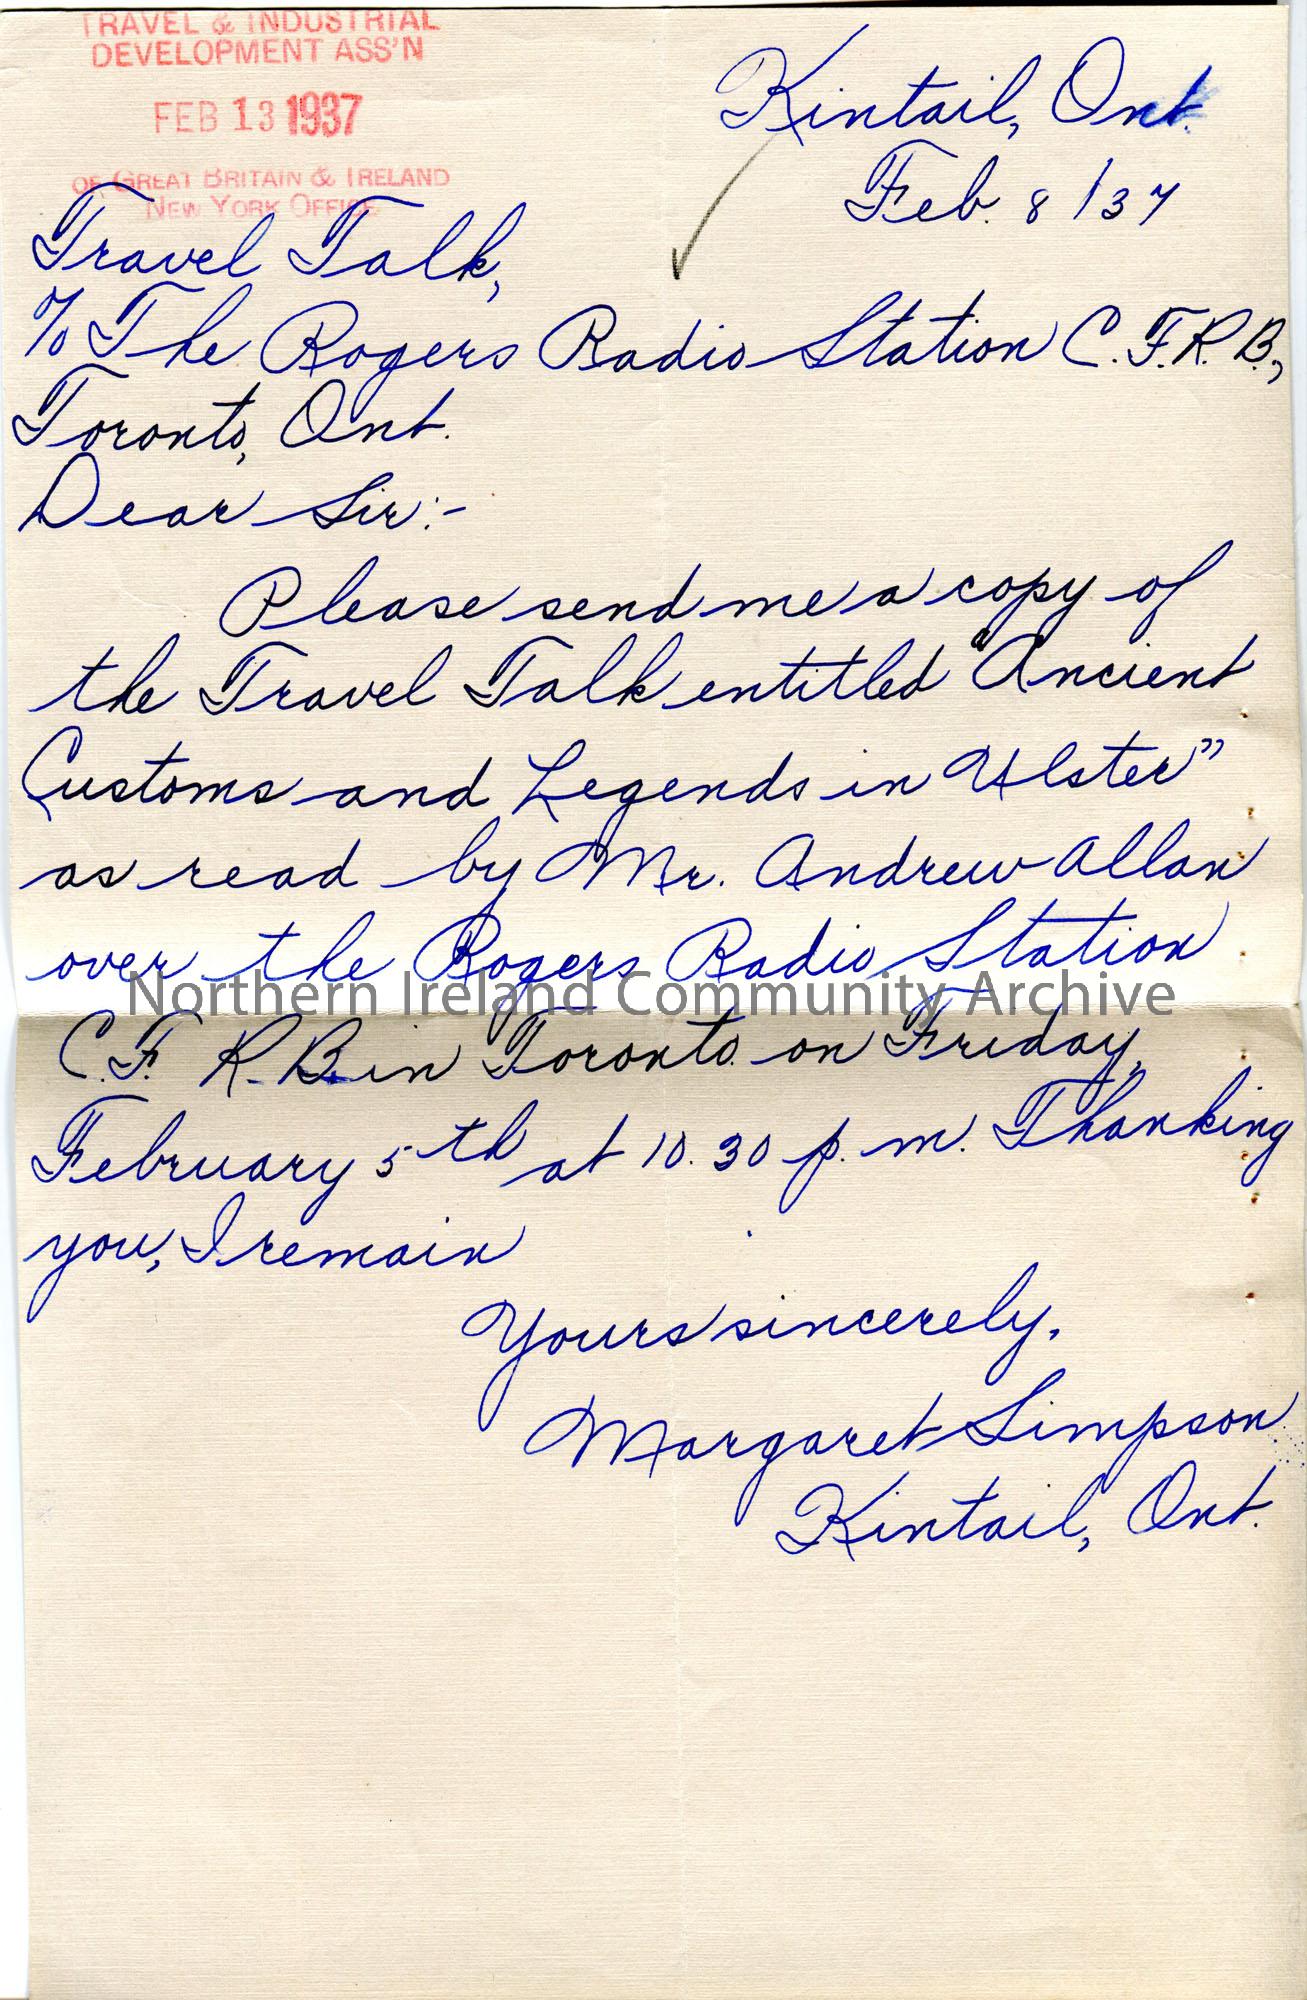 TRAVEL & INDUSTRIAL
DEVELOPMENT ASS'N
FEB 13 1937
OF GREAT BRITAIN & IRELAND
NEW YORK OFFICE
Kintail, Ont.
Feb. 8/37
Travel Talk,
℅ The Rogers Radio Station C.F.R.B.,
Toronto, Ont.
Dear Sir:-
Please send me a copy of
the Travel Talk entitled "Ancient
Customs and Legends in Ulster"
as read by Mr. Andrew Allan
over the Rogers Radio Station
Northern Ireland Community Archive
C.F.R.B. in Toronto on Friday,
February 5th at 10.30 p.m. Thanking
you, I remain
Yours sincerely,
Margaret Simpson
Kintail, Ont.